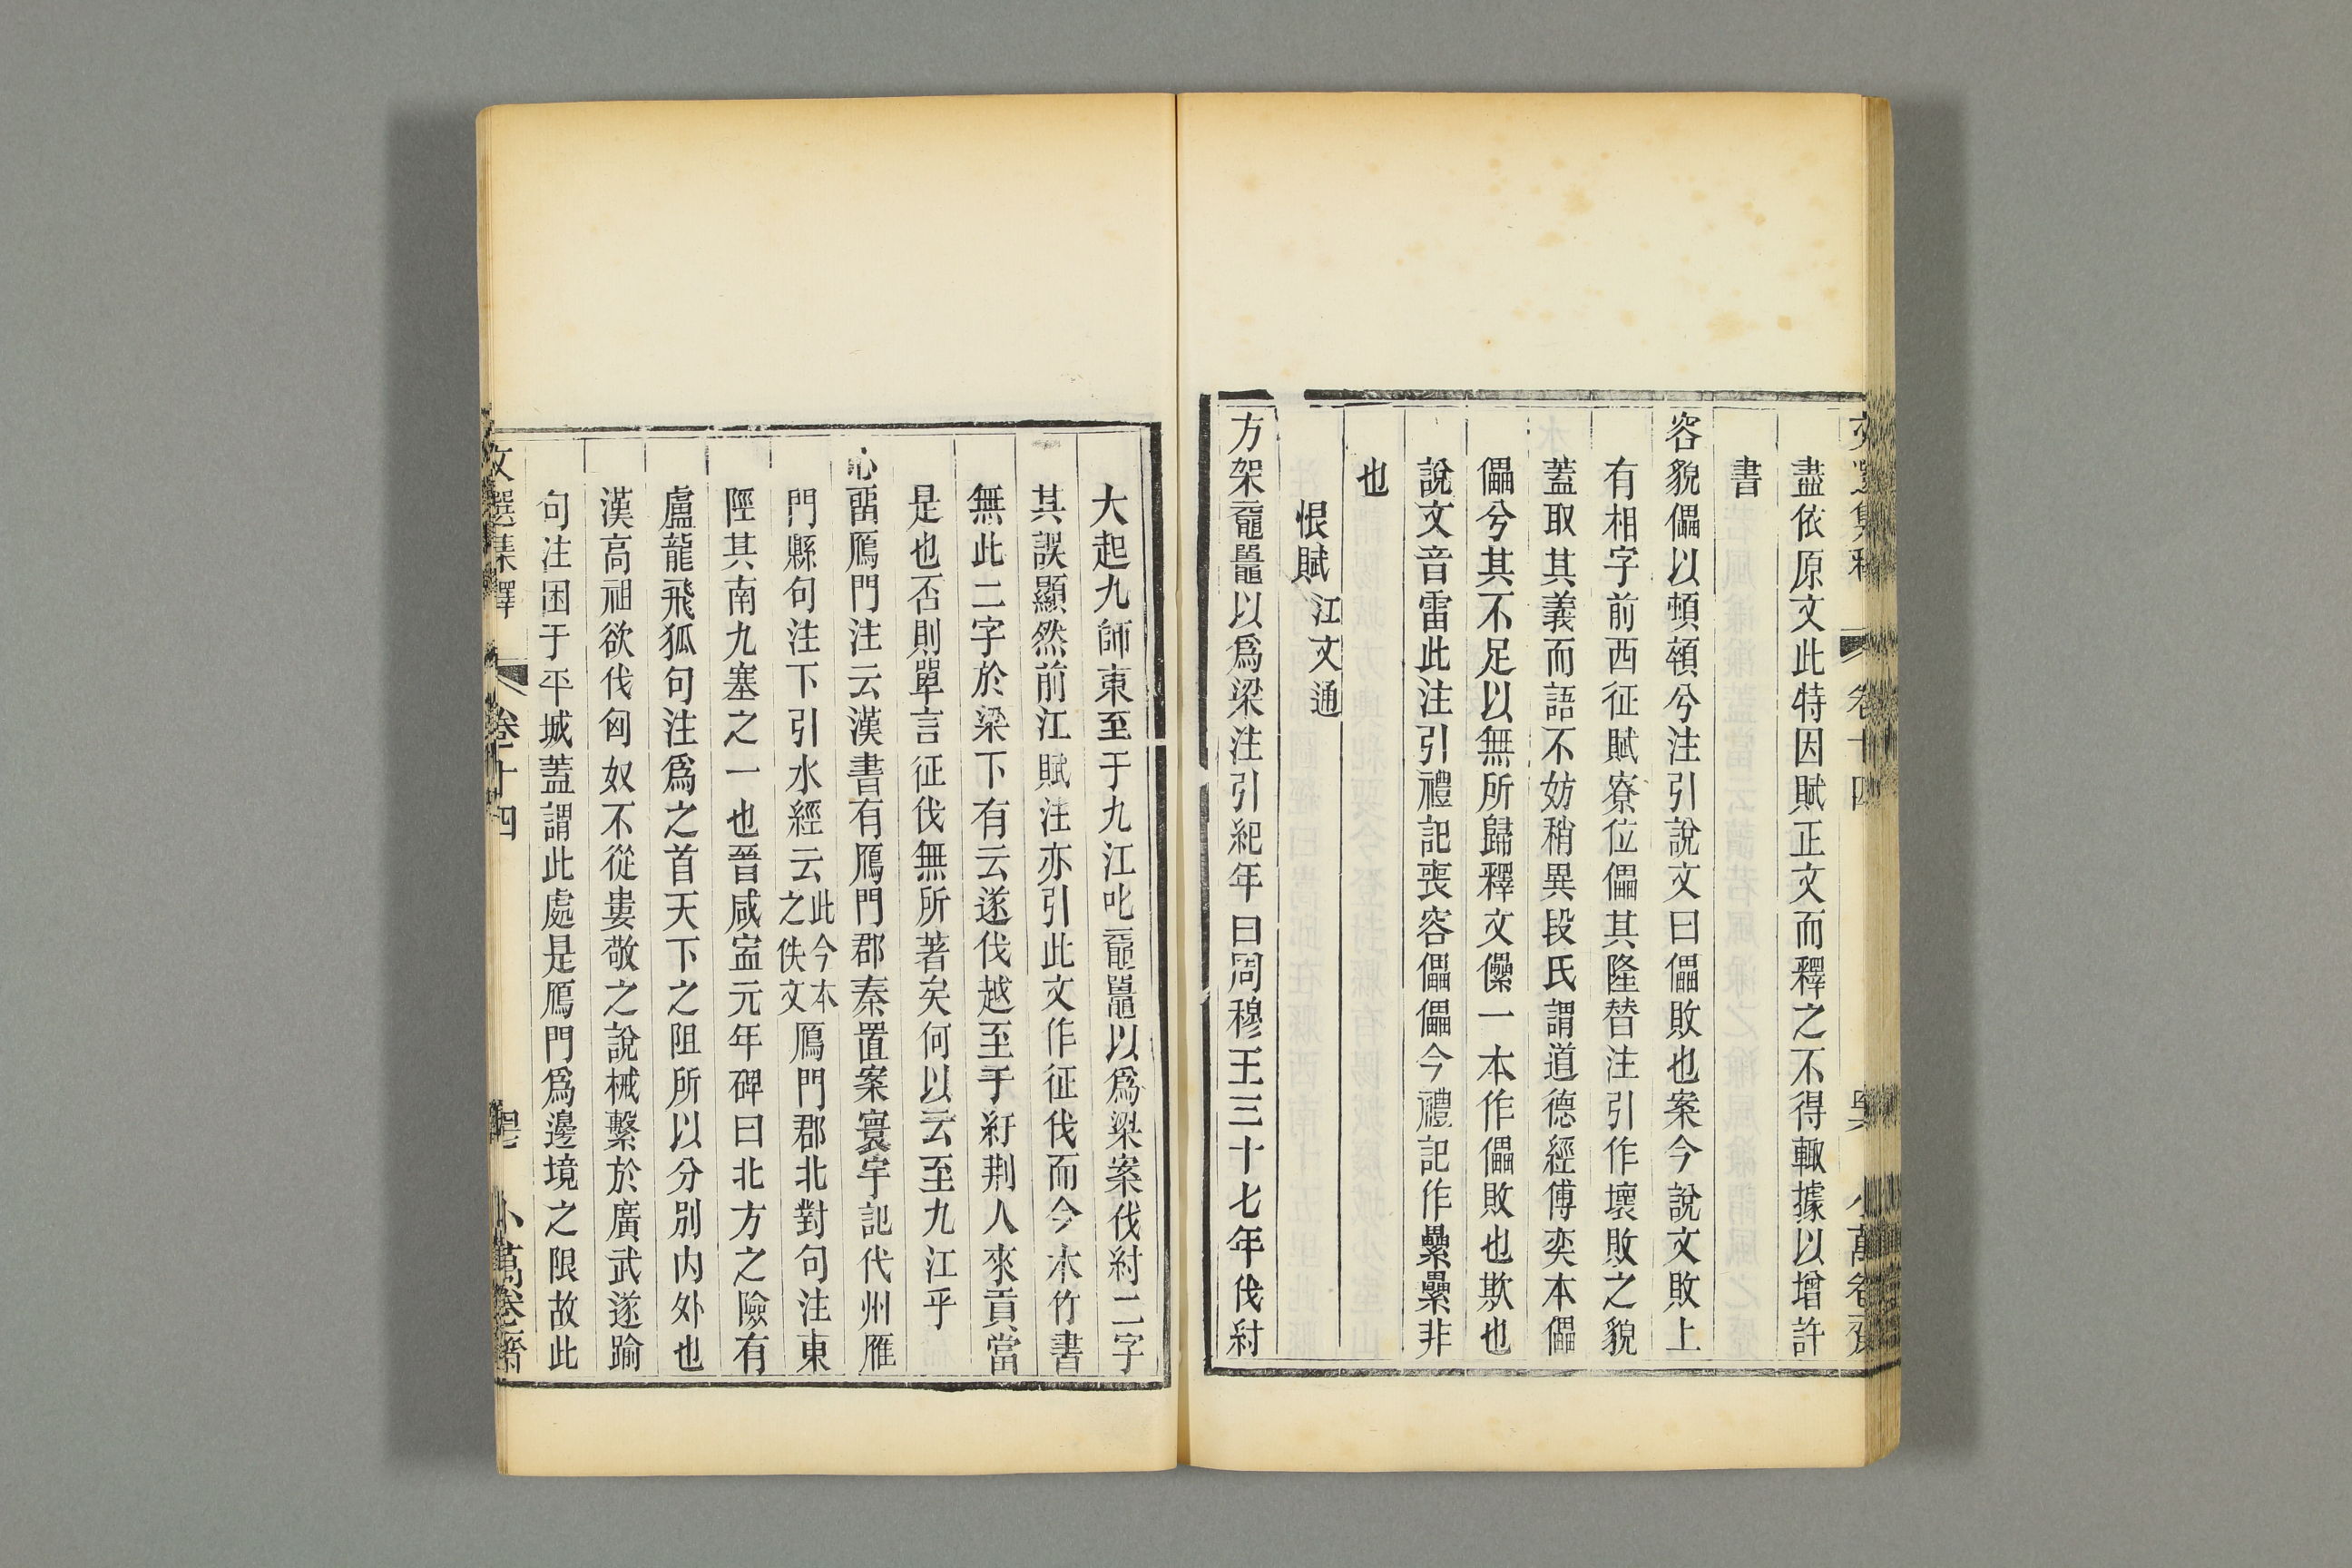 盡依原文此特因賦正文而釋之不得輙據以增許
書
容貌儡以頓顇兮注引說文曰儡敗也案今說文敗上
有相字前西征賦寮位儡其隆替注引作壞敗之貌
蓋取其義而語不妨稍異段氏謂道德經傅奕本儡
儡兮其不足以無所歸釋文儽一本作儡敗也欺也
說文音雷此注引禮記喪容儡儡今禮記作纍纍非
也
恨賦 江文通
方架黿鼉以爲梁注引紀年曰周穆王三十七年伐紂
大起九師東至于九江叱黿鼉以爲梁案伐紂二字
其誤顯然前江賦注亦引此文作征伐而今本竹書
無此二字於梁下有云遂伐越至于紆荆人來貢當
是也否則單言征伐無所著矣何以云至九江乎
心畱鴈門注云漢書有鴈門郡秦置案寰宇記代州雁
門縣句注下引水經云此今本之佚文鴈門郡北對句注東
陘其南九塞之一也晉咸寍元年碑曰北方之險有
盧龍飛狐句注爲之首天下之阻所以分別内外也
漢高祖欲伐匈奴不從婁敬之說械繫於廣武遂踰
句注困于平城蓋謂此處是鴈門爲邊境之限故此
文選集釋 卷十四 小萬卷齋